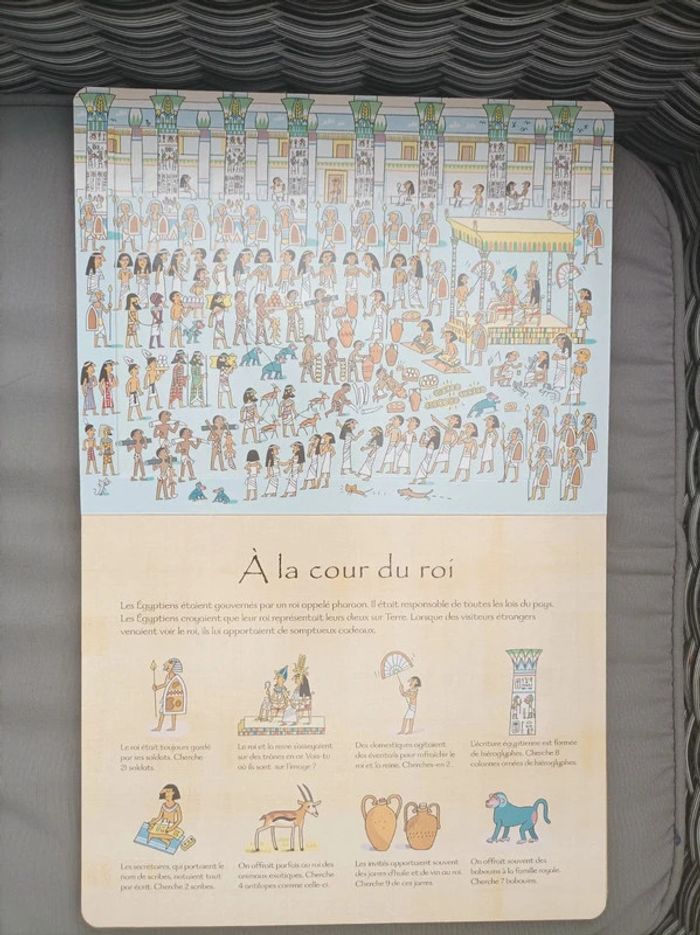 À la cour du roi
Les Égyptiens étaient gouvernés par un roi appelé pharaon. Il était responsable de toutes les lois du pays.
Les Égyptiens croyaient que leur roi représentait leurs dieux sur Terre. Lorsque des visiteurs étrangers
venaient voir le roi, ils lui apportaient de somptueux cadeaux.
Le roi était toujours gardé
par ses soldats. Cherche
21 soldats.
Le roi et la reine s'asseyaient
sur des trônes en or. Vois-tu
où ils sont sur l'image ?
Des domestiques agitaient
des éventails pour rafraîchir le
roi et la reine. Cherches-en 2.
L'écriture égyptienne est formée
de hiéroglyphes. Cherche 8
colonnes ornées de hiéroglyphes.
Les secrétaires, qui portaient le
nom de scribes, notaient tout
par écrit. Cherche 2 scribes.
On offrait parfois au roi des
animaux exotiques. Cherche
4 antilopes comme celle-ci.
Les invités apportaient souvent
des jarres d'huile et de vin au roi.
Cherche 9 de ces jarres.
On offrait souvent des
babouins à la famille royale.
Cherche 7 babouins.